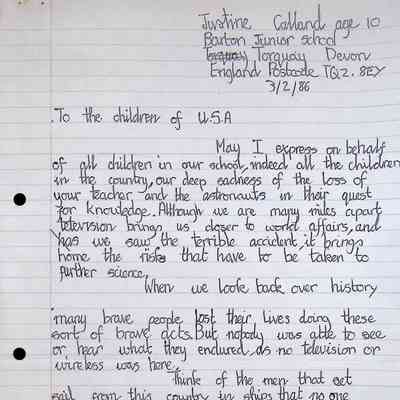 Justine Calland age 10
Barton Junior school
Torquay Torquay Devon
England Postcode TQ2. 8EY
3/2/86
.To the children of U.S.A
May I express on behalf
of all children in our school, indeed all the children
in the country, our deep sadness of the loss of
your teacher and the astronauts in their quest
for knowledge. Although we are many miles apart
television brings us closer to world affairs, and
has we saw the terrible accident, it brings
home the risks that have to be taken to
further science.
When we look back over history
many brave people lost their lives doing these
sort of brave acts. But nobody was able to see
or hear what they endured, as no television or
wireless was here.
Think of the men that set
sail from this country in ships that no one